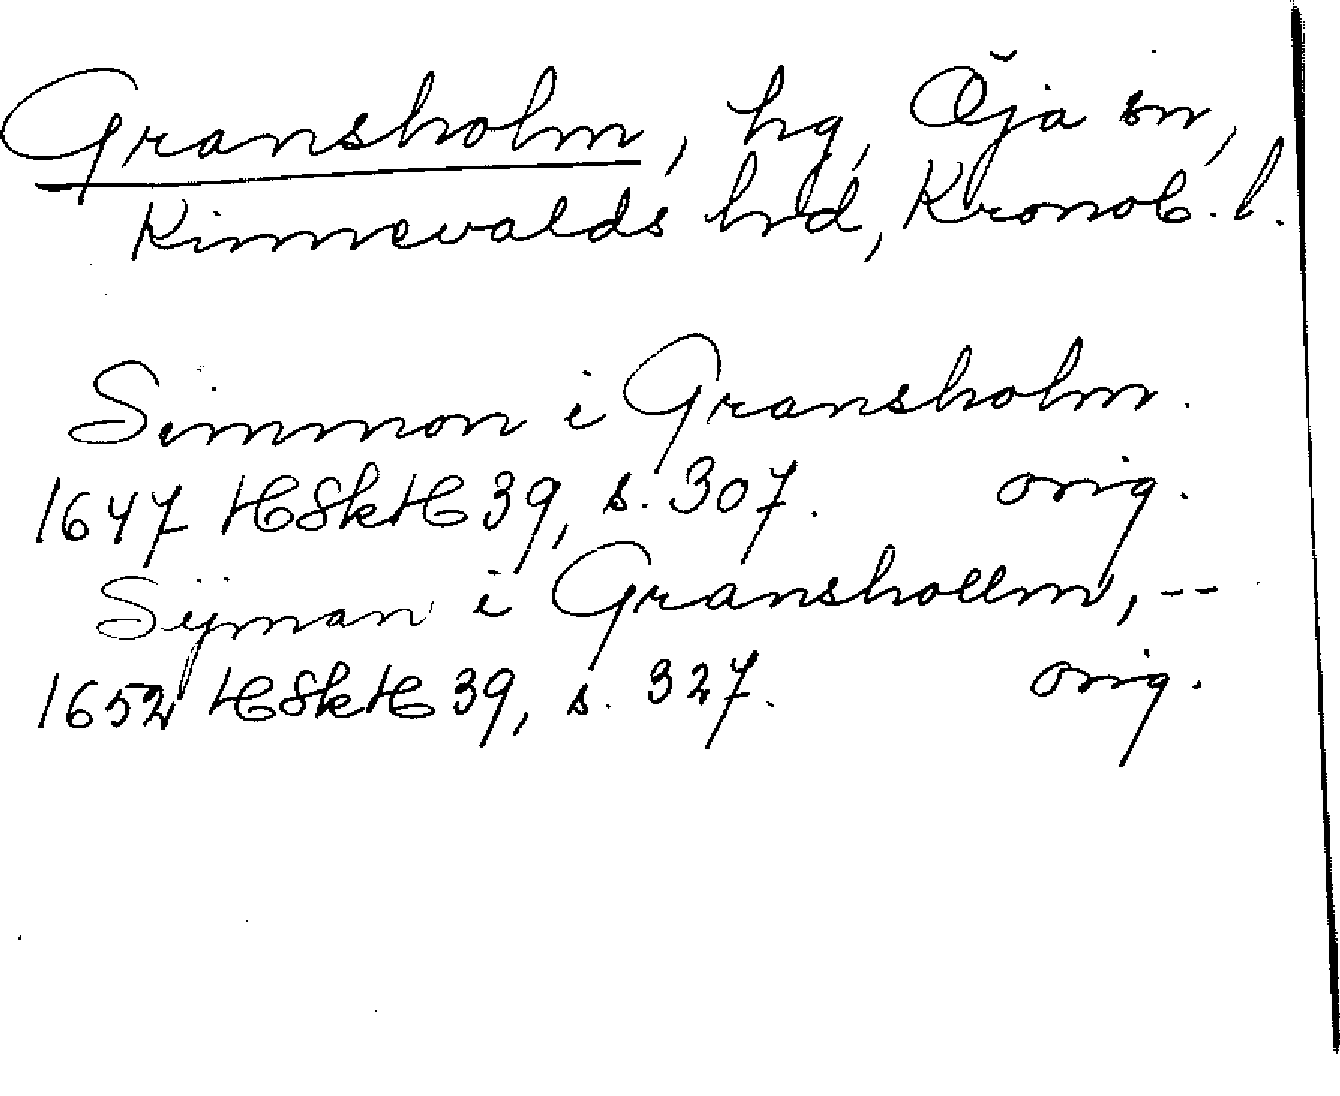 Gransholm, hg, Öja sn,
Kinnevalds hrd, Kronob. l.
Simmon i Gransholm.
1647 HSkH 39, s. 307. orig.
Sÿman i Granshollm, --
1652 HSkH 39, s. 327. orig.